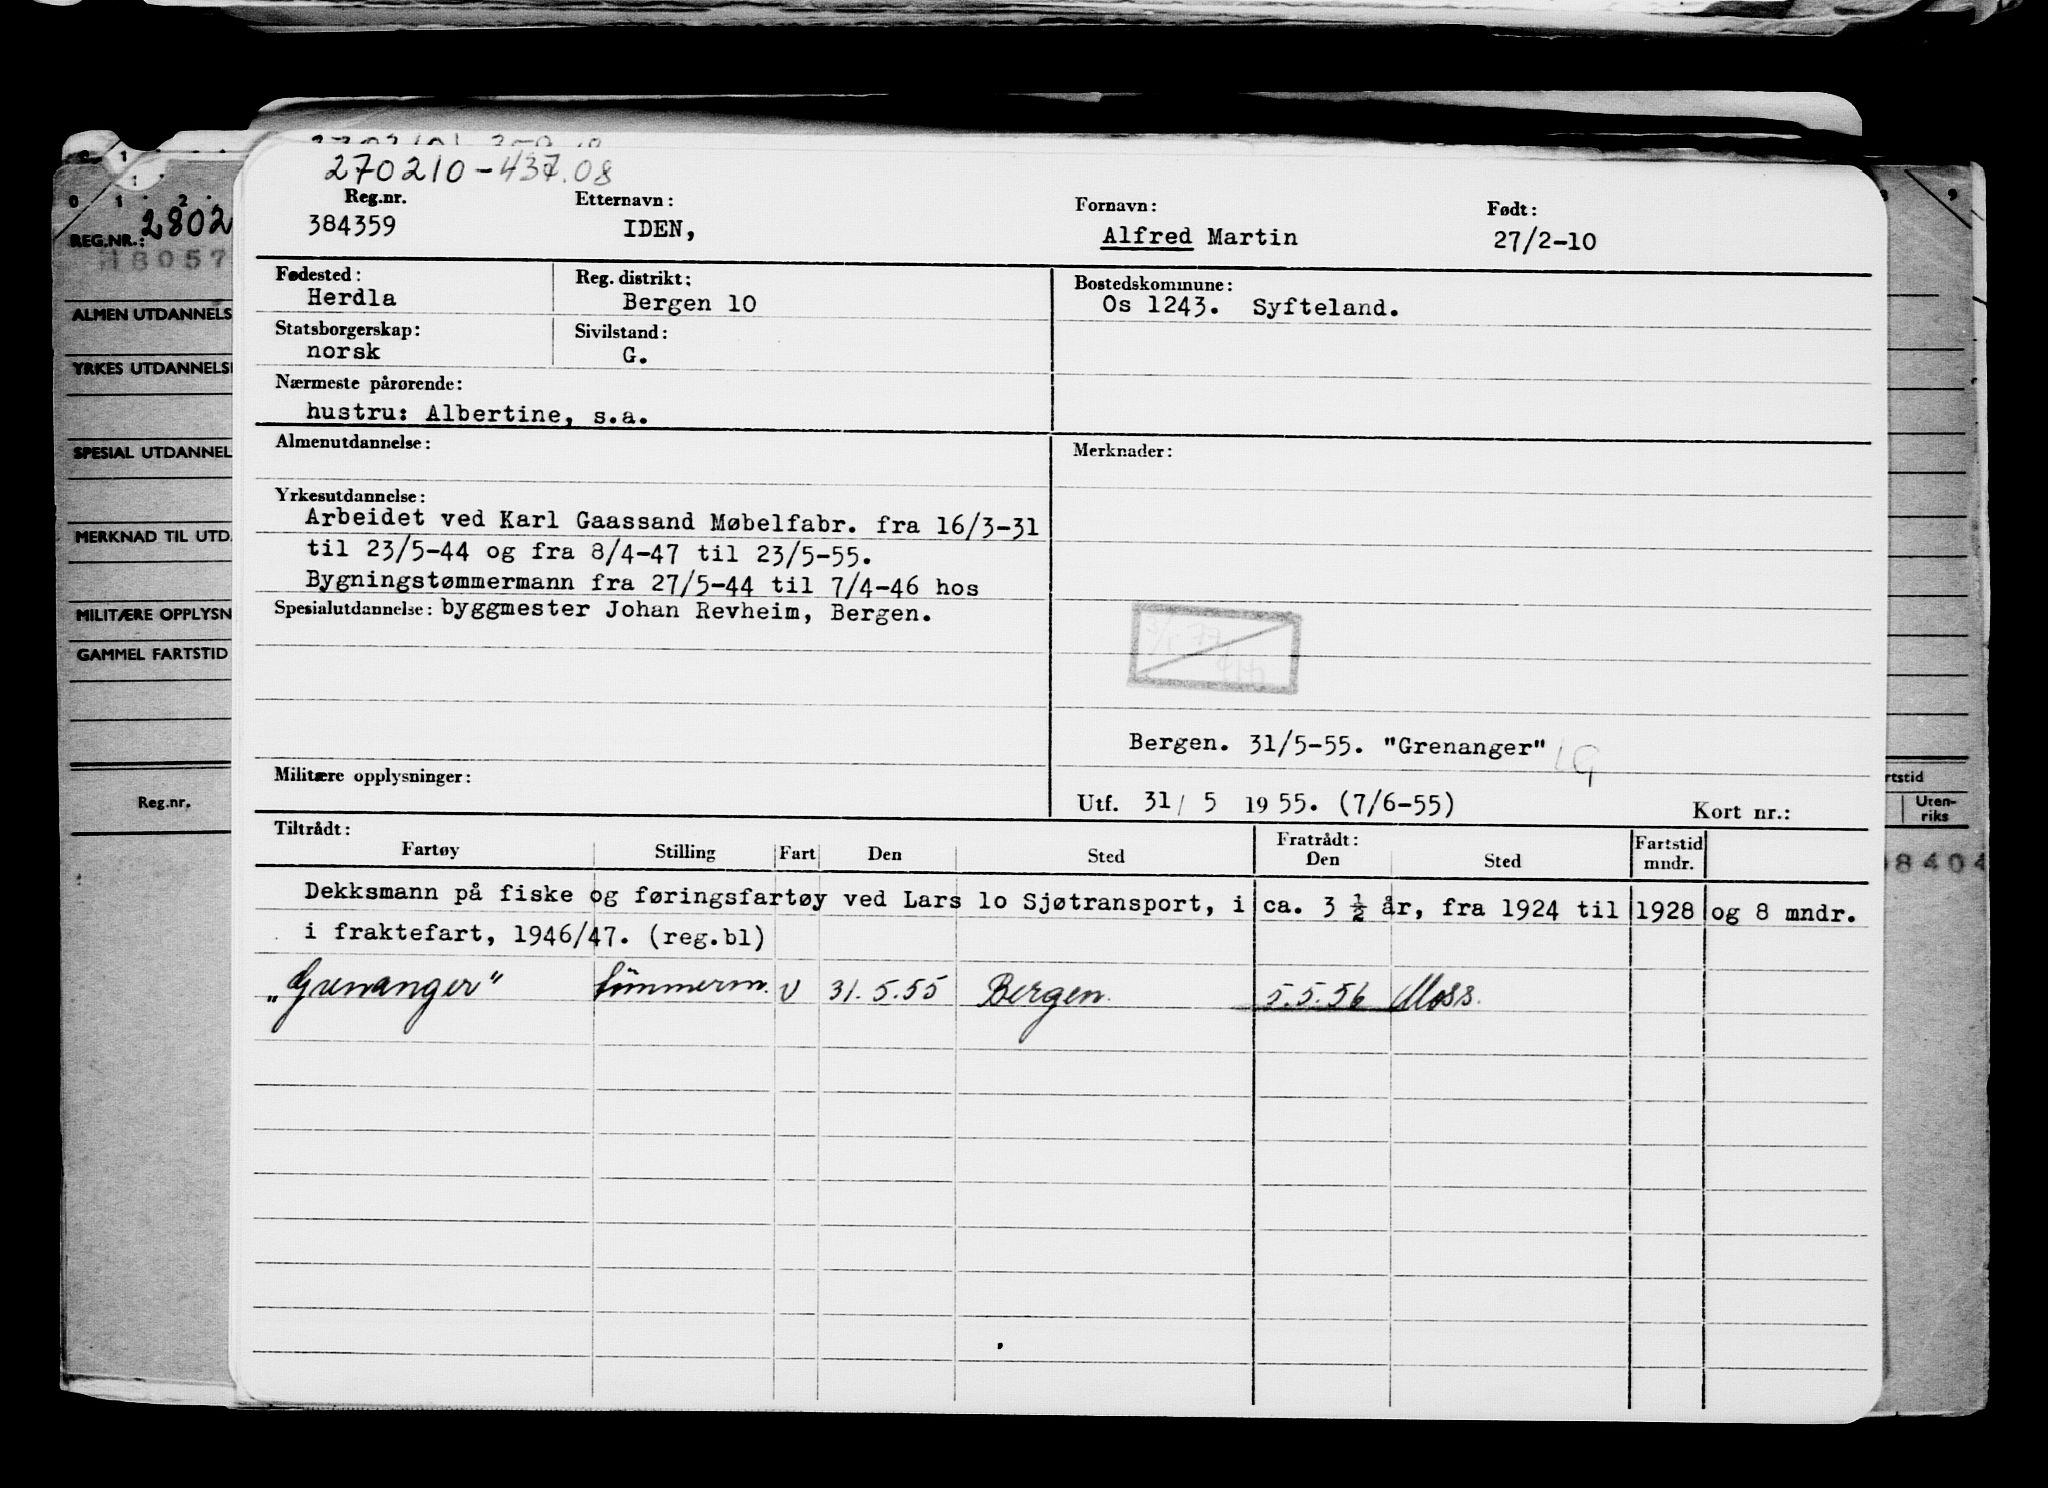 270210-437.08
Reg.nr. Etternavn: Fornavn: Født:
384359 IDEN, Alfred Martin 27/2-10
Fødested: Reg. distrikt: Bostedskommune:
Herdla Bergen 10 Os 1243. Syfteland.
Statsborgerskap: Sivilstand:
norsk G.
Nærmeste pårørende:
hustru: Albertine, s.a.
Almenutdannelse: Merknader:
Yrkesutdannelse:
Arbeidet ved Karl Gaassand Møbelfabr. fra 16/3-31
til 23/5-44 og fra 8/4-47 til 23/5-55.
Bygningstømmermann fra 27/5-44 til 7/4-46 hos
Spesialutdannelse: byggmester Johan Revheim, Bergen.
Bergen. 31/5-55. "Grenanger" LG
Militære opplysninger:
Utf. 31/ 5 1955. (7/6-55) Kort nr.:
Tiltrådt: Fratrådt:
Fartøy Stilling Fart Den Sted Den Sted Fartstid mndr.
Dekksmann på fiske og føringsfartøy ved Lars lo Sjøtransport, i ca. 3 ½ år, fra 1924 til 1928 og 8 mndr.
i fraktefart, 1946/47. (reg.bl)
"Grenanger" tömmerm. U 31.5.55 Bergen. 5.5.56 Moss.
0 1 2
REG.NR.: 2802
18057
ALMEN UTDANNELS
YRKES UTDANNELSE
SPESIAL UTDANNEL
MERKNAD TIL UTD.
MILITÆRE OPPLYSN
GAMMEL FARTSTID
Reg.nr.
9
rtstid
Uten-
riks
8404